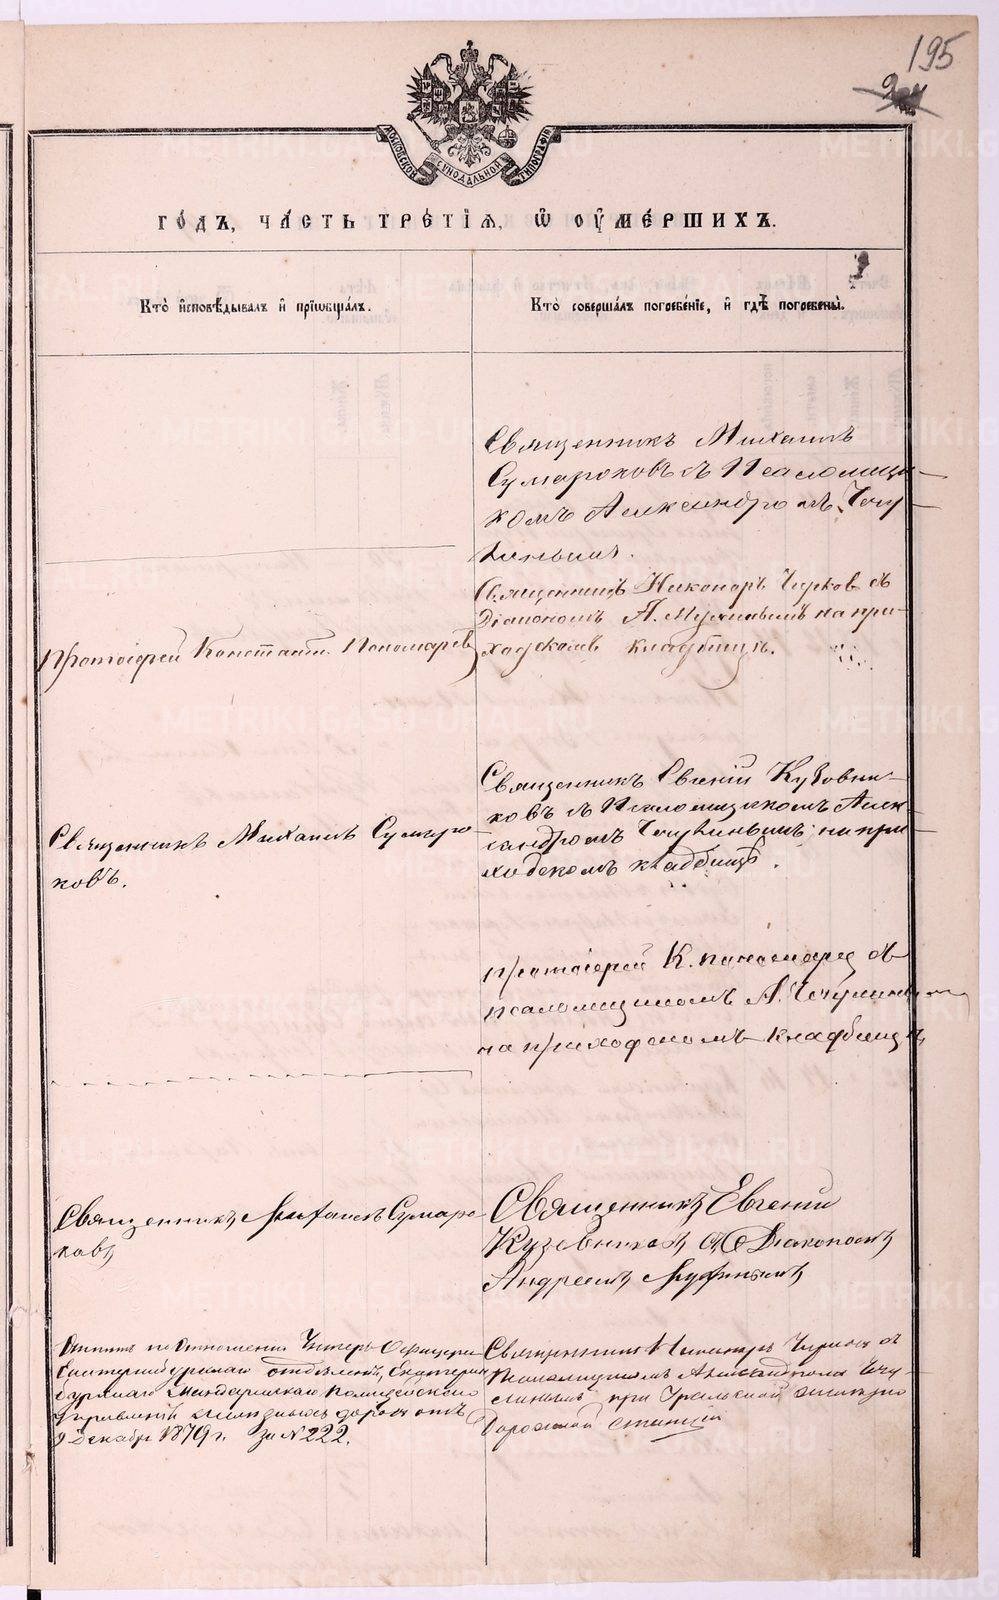 195
МОСКОВСКОЙ СѴНОДАЛЬНОЙ ТИПОГРАФІИ
ГО́ДЪ, ЧА́СТЬ ТРЕ́ТІѦ, Ѡ҆ ОУ҆МЕ́РШИХЪ.
Кто̀ и҆сповѣ́дывалъ и҆ прїѡбща́лъ.
Кто̀ соверша́лъ погребе́нїе, и҆ гдѣ̀ погребены̀.
Священникъ Михаилъ
Сумароковъ съ Псаломщи-
комъ Александромъ Чечу-
линымъ.
Протоіерей Констант. Пономаревъ
Священникъ Никоноръ Чирков съ
Діакономъ А. на при-
ходскомъ кладбищѣ.
Священникъ Михаилъ Сумаро-
ковъ.
Священникъ Евгеній Кузовни-
ковъ съ Псаломщикомъ Алек-
сандромъ Чечулинымъ на при-
ходскомъ кладбищѣ.
протоіерей К. пономарев съ
псаломщикомъ А. Чечулинымъ
на приходскомъ кладбищѣ
Священникъ Михаилъ Сумаро-
ковъ
Священникъ Евгеній
Кузовниковъ съ Діакономъ
Андреемъ
Отпѣтъ по Отношенію Унтеръ-Офицера
Екатеринбурскаго отдѣленія, Екатерин-
бурскаго Жандармскаго Полицейскаго
Управленія желѣзныхъ дорогъ отъ
9 Декабр 1879 г. за №222.
Священникъ Никаноръ Чирковъ съ
Псаломщикомъ Александромъ Чечу-
линымъ при Уральской желѣзно
дорожной станціи
METRIKI.GASO-URAL.RU